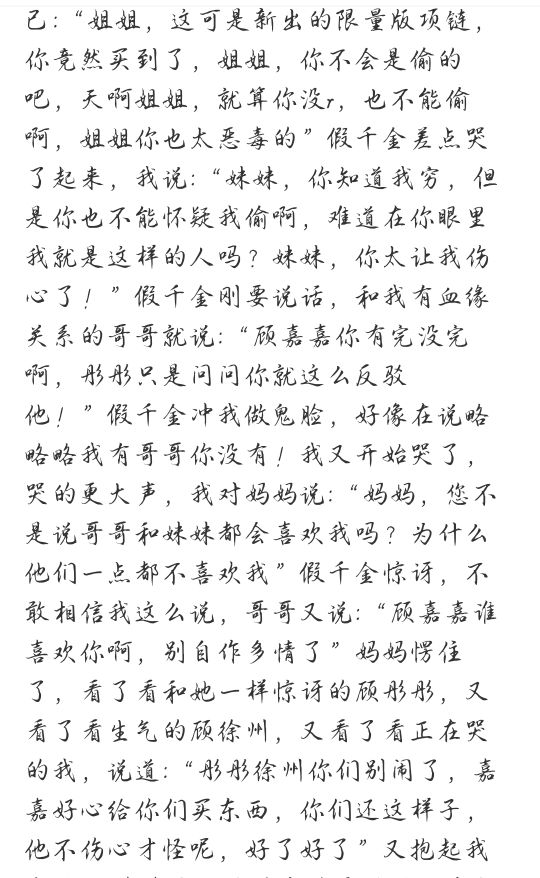 己：“姐姐，这可是新出的限量版项链，
你竟然买到了，姐姐，你不会是偷的
吧，天啊姐姐，就算你没r，也不能偷
啊，姐姐你也太恶毒的”假千金差点哭
了起来，我说：“妹妹，你知道我穷，但
是你也不能怀疑我偷啊，难道在你眼里
我就是这样的人吗？妹妹，你太让我伤
心了！”假千金刚要说话，和我有血缘
关系的哥哥就说：“顾嘉嘉你有完没完
啊，彤彤只是问问你就这么反驳
他！”假千金冲我做鬼脸，好像在说略
略略我有哥哥你没有！我又开始哭了，
哭的更大声，我对妈妈说：“妈妈，您不
是说哥哥和妹妹都会喜欢我吗？为什么
他们一点都不喜欢我”假千金惊讶，不
敢相信我这么说，哥哥又说：“顾嘉嘉谁
喜欢你啊，别自作多情了”妈妈愣住
了，看了看和她一样惊讶的顾彤彤，又
看了看生气的顾徐州，又看了看正在哭
的我，说道：“彤彤徐州你们别闹了，嘉
嘉好心给你们买东西，你们还这样子，
他不伤心才怪呢，好了好了”又抱起我